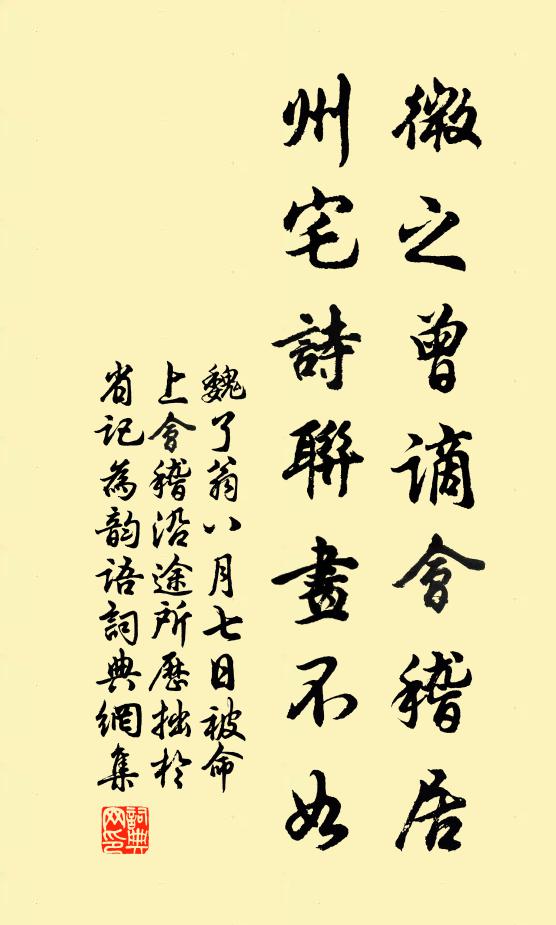 微之曾謫會稽居
州宅詩聯畫不如
魏了翁八月七日被命
上會稽沿途所歷拙於
省記為韵語詞典網集
詞典網印